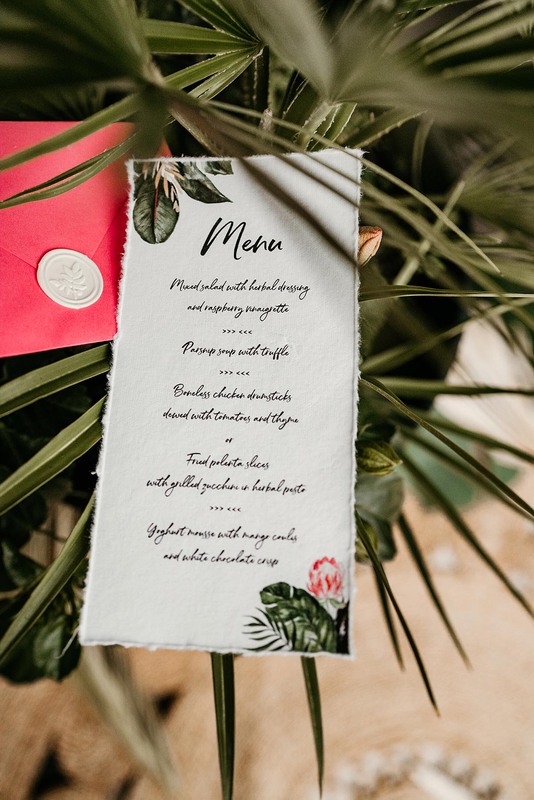 Menu
Mixed salad with herbal dressing
and raspberry vinaigrette
>>> <<<
Parsnip soup with truffle
>>> <<<
Boneless chicken drumsticks
dewed with tomatoes and thyme
or
Fried polenta slices
with grilled zucchini in herbal pesto
>>> <<<
Yoghurt mousse with mango coulis
and white chocolate crisp